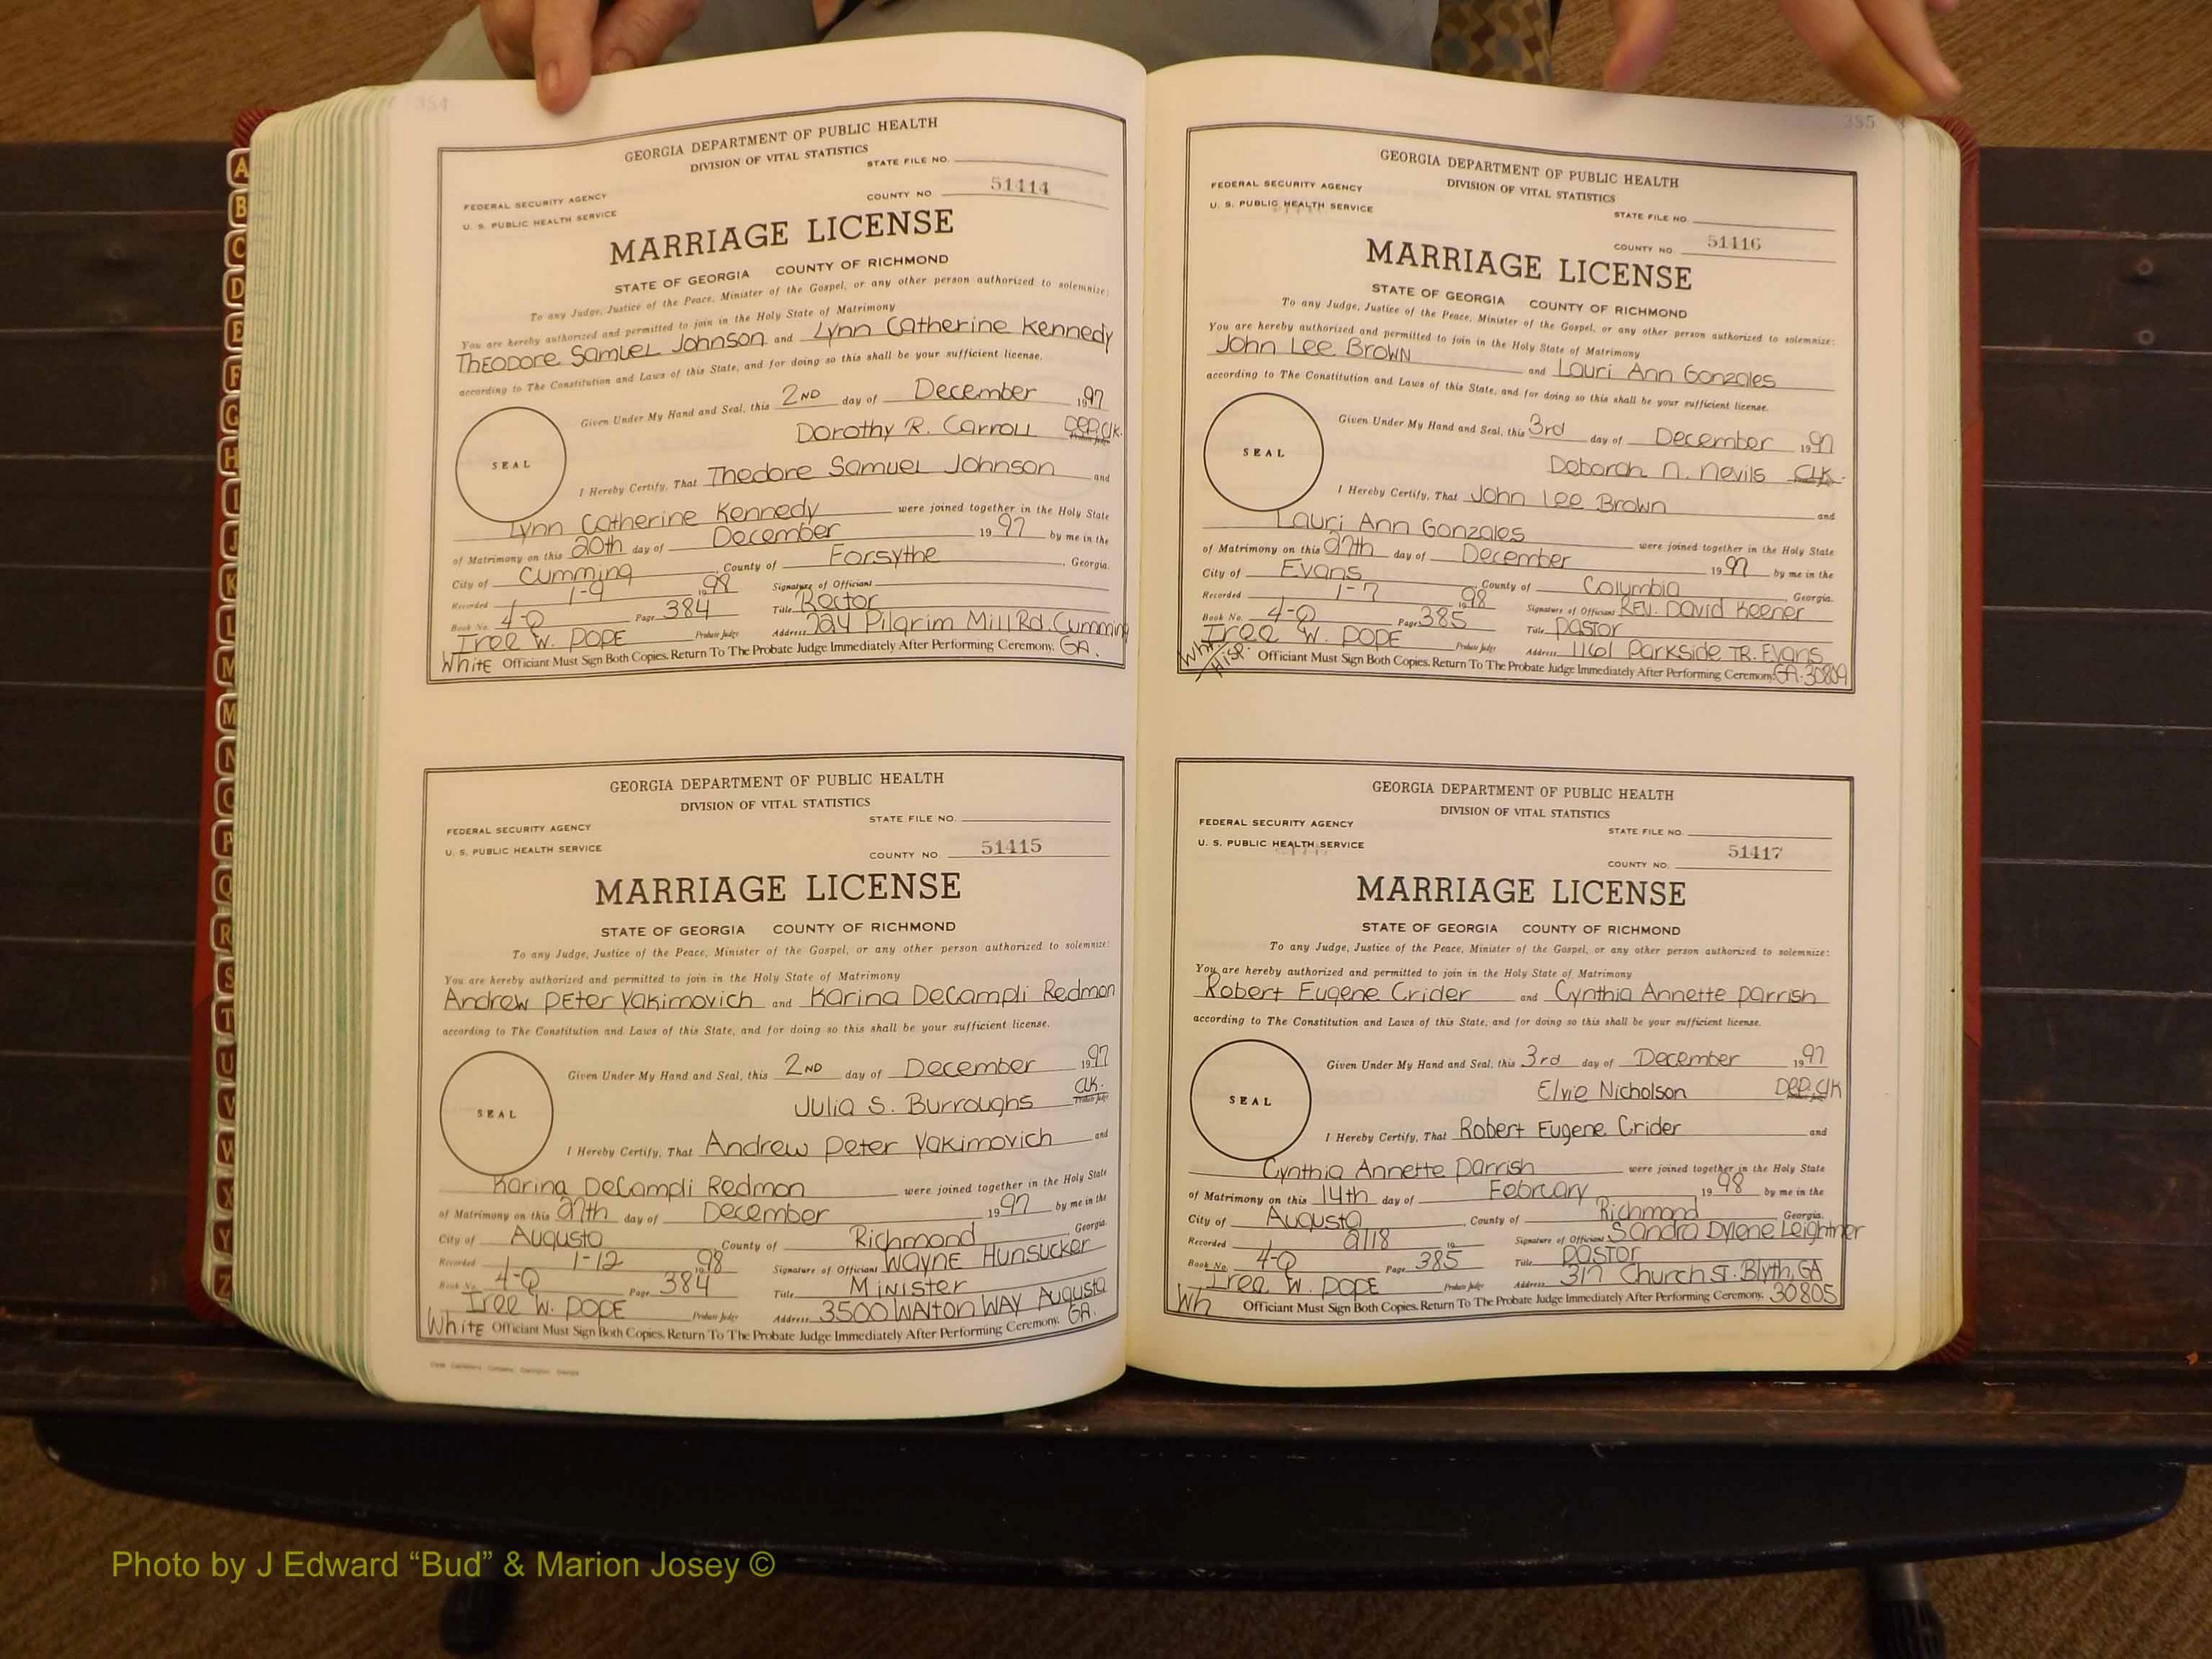 384
GEORGIA DEPARTMENT OF PUBLIC HEALTH
DIVISION OF VITAL STATISTICS
STATE FILE NO.
FEDERAL SECURITY AGENCY
U. S. PUBLIC HEALTH SERVICE
COUNTY NO 51414
MARRIAGE LICENSE
STATE OF GEORGIA COUNTY OF RICHMOND
To any Judge, Justice of the Peace, Minister of the Gospel, or any other person authorized to solemnize:
You are hereby authorized and permitted to join in the Holy State of Matrimony
THEODORE SAMUEL JOHNSON and Lynn Catherine Kennedy
according to The Constitution and Laws of this State, and for doing so this shall be your sufficient license.
Given Under My Hand and Seal, this 2ND day of December 1997
Dorothy R. Carroll DEP. CLK.
Probate Judge
SEAL
I Hereby Certify, That Thedore Samuel Johnson and
Lynn Catherine Kennedy were joined together in the Holy State
of Matrimony on this 20th day of December 1997 by me in the
City of Cumming, County of Forsythe, Georgia.
Recorded 1-9 1998 Signature of Officiant
Book No. 4-Q Page 384 Title Rector
Iree W. POPE Probate Judge Address 724 Pilgrim Mill Rd Cumming
White Officiant Must Sign Both Copies. Return To The Probate Judge Immediately After Performing Ceremony. GA.
GEORGIA DEPARTMENT OF PUBLIC HEALTH
DIVISION OF VITAL STATISTICS
STATE FILE NO.
FEDERAL SECURITY AGENCY
U. S. PUBLIC HEALTH SERVICE
COUNTY NO 51415
MARRIAGE LICENSE
STATE OF GEORGIA COUNTY OF RICHMOND
To any Judge, Justice of the Peace, Minister of the Gospel, or any other person authorized to solemnize:
You are hereby authorized and permitted to join in the Holy State of Matrimony
Andrew PEter Yakimovich and Karina DeCampli Redmon
according to The Constitution and Laws of this State, and for doing so this shall be your sufficient license.
Given Under My Hand and Seal, this 2ND day of December 1997
Julia S. Burroughs CLK.
Probate Judge
SEAL
I Hereby Certify, That Andrew Peter Yakimovich and
Karina DeCampli Redmon were joined together in the Holy State
of Matrimony on this 27th day of December 1997 by me in the
City of Augusta County of Richmond, Georgia.
Recorded 1-12 1998 Signature of Officiant WAYNE HUNSUCKER
Book No. 4-Q Page 384 Title MINISTER
Iree W. POPE Probate Judge Address 3500 WALTON WAY AUGUSTA
White Officiant Must Sign Both Copies. Return To The Probate Judge Immediately After Performing Ceremony. GA.
385
GEORGIA DEPARTMENT OF PUBLIC HEALTH
DIVISION OF VITAL STATISTICS
FEDERAL SECURITY AGENCY
U. S. PUBLIC HEALTH SERVICE
STATE FILE NO.
COUNTY NO 51416
MARRIAGE LICENSE
STATE OF GEORGIA COUNTY OF RICHMOND
To any Judge, Justice of the Peace, Minister of the Gospel, or any other person authorized to solemnize:
You are hereby authorized and permitted to join in the Holy State of Matrimony
John Lee Brown and Lauri Ann Gonzales
according to The Constitution and Laws of this State, and for doing so this shall be your sufficient license.
Given Under My Hand and Seal, this 3rd day of December 1997
Deborah N. Nevils CLK.
SEAL
I Hereby Certify, That John Lee Brown and
Lauri Ann Gonzales were joined together in the Holy State
of Matrimony on this 27th day of December 1997 by me in the
City of Evans, County of Columbia Georgia.
Recorded 1-7 1998 Signature of Officiant REV. DAVID KEENER
Book No. 4-Q Page 385 Title PASTOR
Iree W. POPE Probate Judge Address 1161 Parkside TR. Evans
Wh/HISP. Officiant Must Sign Both Copies. Return To The Probate Judge Immediately After Performing Ceremony. GA. 30809
GEORGIA DEPARTMENT OF PUBLIC HEALTH
DIVISION OF VITAL STATISTICS
FEDERAL SECURITY AGENCY
U. S. PUBLIC HEALTH SERVICE
STATE FILE NO.
COUNTY NO. 51417
MARRIAGE LICENSE
STATE OF GEORGIA COUNTY OF RICHMOND
To any Judge, Justice of the Peace, Minister of the Gospel, or any other person authorized to solemnize:
You are hereby authorized and permitted to join in the Holy State of Matrimony
Robert Eugene Crider and Cynthia Annette Parrish
according to The Constitution and Laws of this State, and for doing so this shall be your sufficient license.
Given Under My Hand and Seal, this 3rd day of December 1997
Elvie Nicholson DEP. CLK
SEAL
I Hereby Certify, That Robert Eugene Crider and
Cynthia Annette Parrish were joined together in the Holy State
of Matrimony on this 14th day of February 1998 by me in the
City of Augusta, County of Richmond Georgia.
Recorded 2118 19 Signature of Officiant Sandra Dylene Leightner
Book No. 4-Q Page 385 Title PASTOR
Iree W. POPE Probate Judge Address 317 Church ST. Blyth, GA
Wh Officiant Must Sign Both Copies. Return To The Probate Judge Immediately After Performing Ceremony. 30805
A
B
C
D
E
F
G
H
I
J
K
L
M
M
N
O
P
Q
R
S
T
U
V
W
X
Y
Z
Photo by J Edward “Bud” & Marion Josey ©